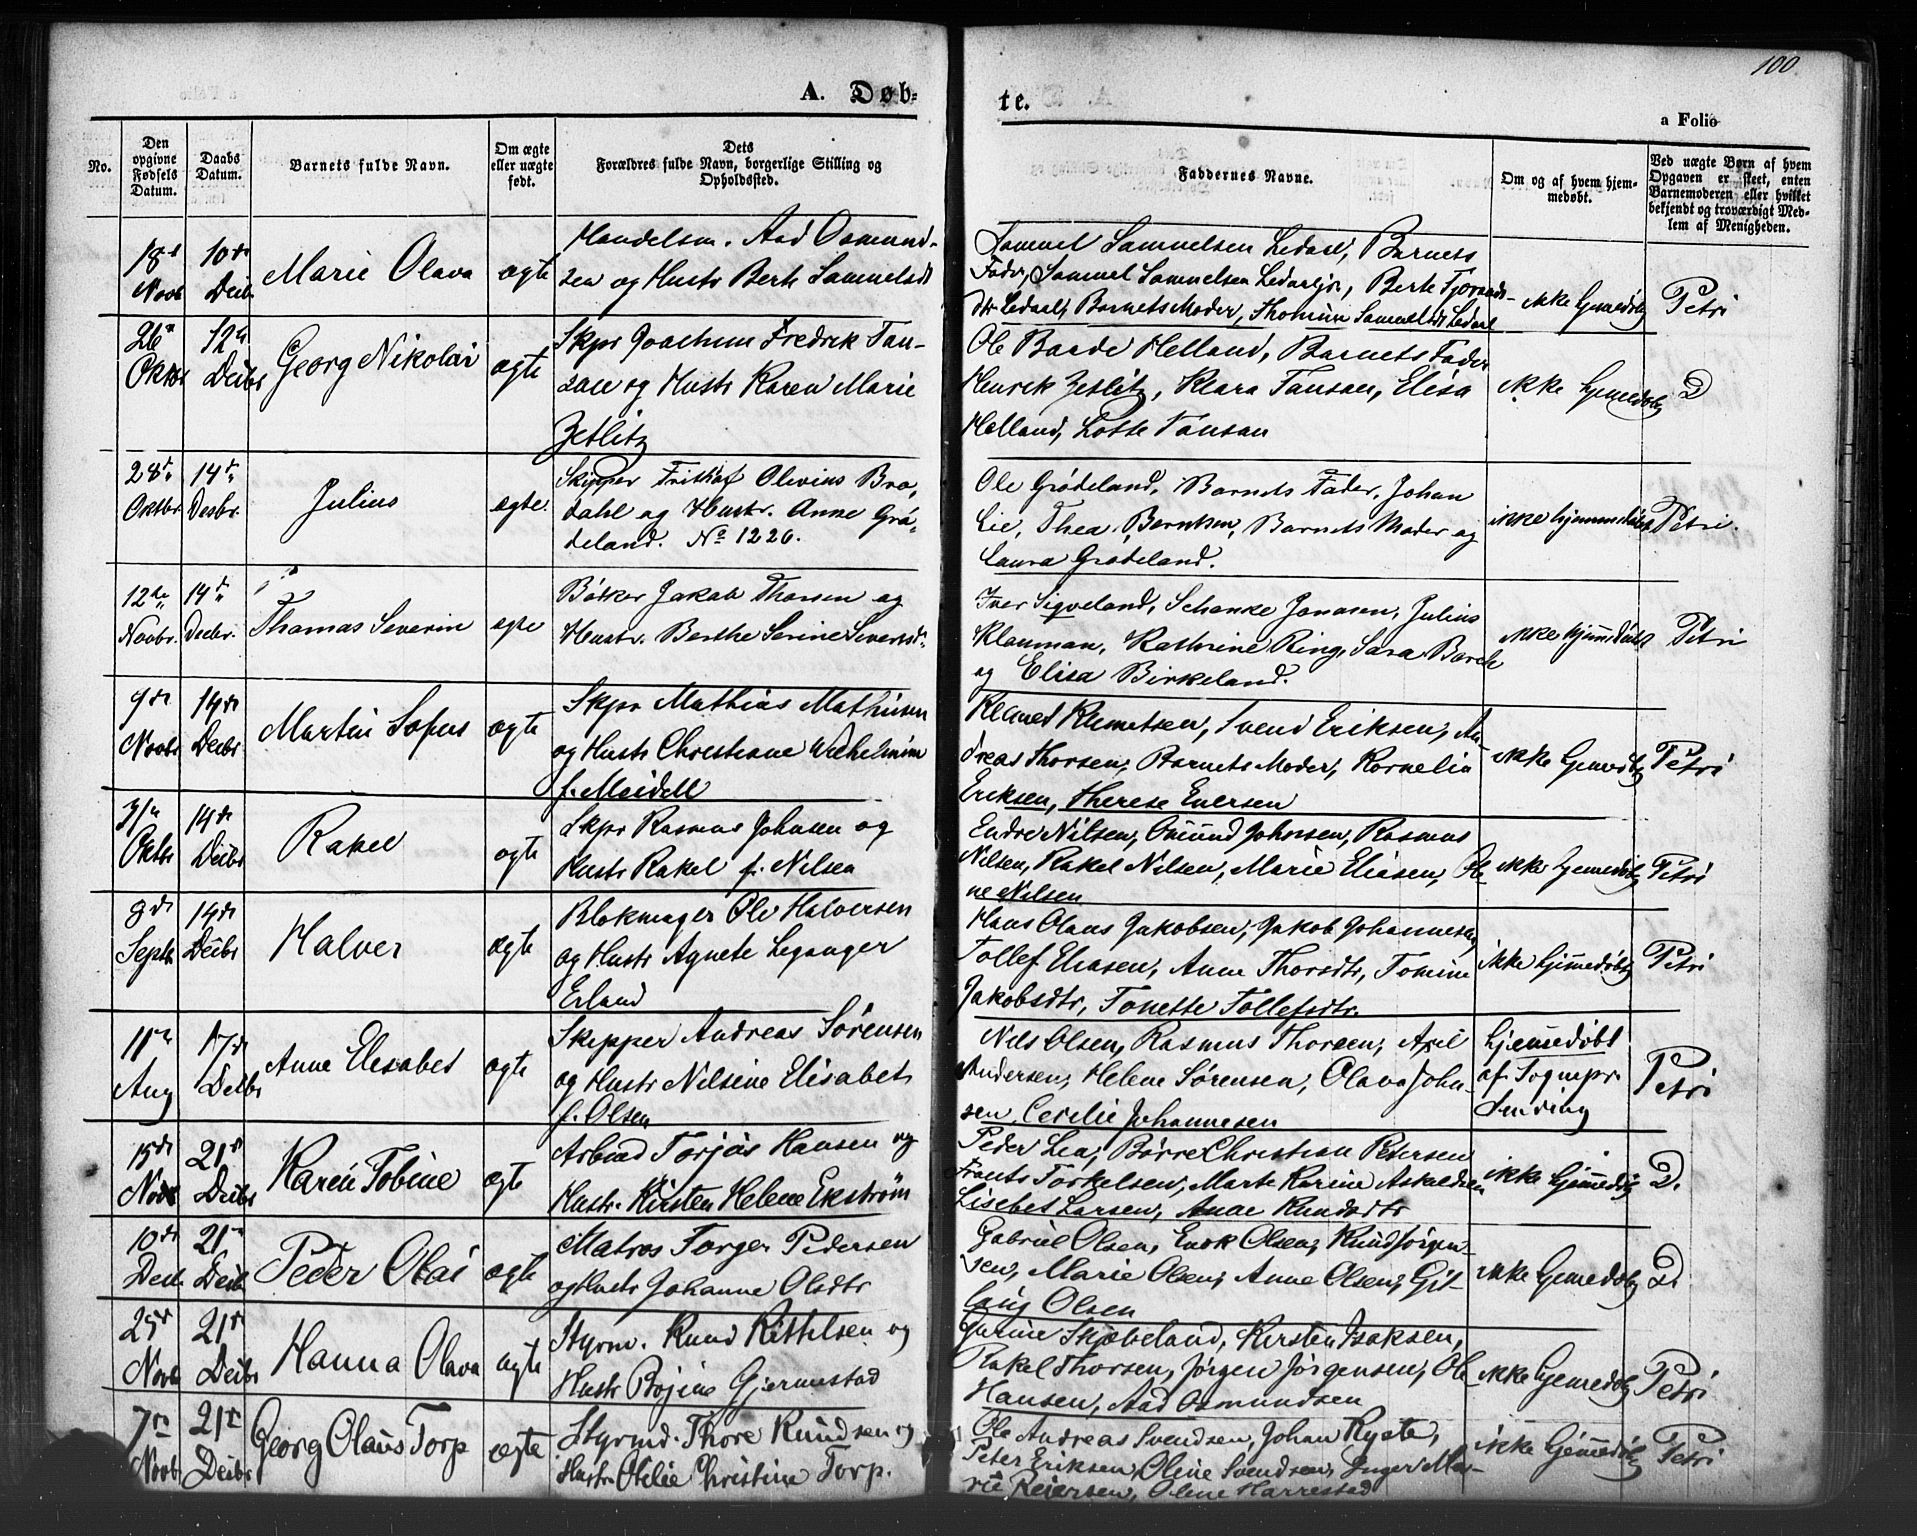 100
A. Døb-
te.
a Folio
No.
Den opgivne Fødsels Datum.
Daabs Datum.
Barnets fulde Navn.
Om ægte eller uægte født.
Dets Forældres fulde Navn, borgerlige Stilling og Opholdssted.
Faddernes Navne.
Om og af hvem hjemmedøbt.
Ved uægte Børn af hvem Opgaven er skeet, enten Barnemoderen eller hvilket bekjendt og troværdigt Medlem af Menigheden.
18de Novb
10de Decb
Marie Olava
ægte
Handelsm. Aad Osmund-
sen og Hustr Berte Samuelsdt
Samuel Samuelsen Ledaal, Barnets
Fader, Samuel Samuelsen Ledaal jr., Berte
Ledaal, Barnets Moder, Thomine Samuelsdt Ledaal
ikke hjemedøbt
Petri
26 Oktbr
12te Decbr
Georg Nikolai
ægte
Skpr Joachum Fredrik Tan-
sen og Hustr Karen Marie
Zetlitz
Ole Barde Helland, Barnets Fader
Henrik Zetlitz, Klara Tansen, Elisa
Helland, Lotte Tansan
ikke hjemedøbt
D
28de Oktbr
14de Decbr.
Julius
ægte.
Skipper Frithiof Olivius Bro-
dahl og Hustr. Anne Grö-
deland. No 1226.
Ole Grödeland, Barnets Fader, Johan
Lie, Thea Berntsen, Barnets Moder og
Laura Grødeland.
ikke hjemmedøbt
Petri.
12te Novbr.
14de Decbr.
Thomas Severin
ægte
Bøtker Jakob Thorsen og
Hustr. Berthe Serine Seversdt
Iver Sigveland, Schanke Jonasen, Julius
Klauman, Kathrine Ring, Sara Barck
og Elisa Birkeland.
ikke hjemmedøbt
Petri
9de Novbr
14de Decbr
Martin Sofus
ægte
Skpr Mathias Mathisen
og Hustr Christiane Wilhelmine
f. Meidell
Klaned Klemetsen, Svend Eriksen, An-
dreas Thorsen, Barnets Moder, Kornelia
Eriksen, Therese Eversen
ikke hjemedøbt
Petri
31te Oktbr
14de Decbr
Rakel
ægte
Skpr Rasmus Johnsen og
Hustr Rakel f. Nilsen
Endre Nilsen, Omund Johnsen, Rasmus
Nilsen, Rakel Nilsen, Marie Eliasen, Ole-
ne Nilsen
ikke hjemedøbt
Petri
9de Septb
14de Decbr
Halver
ægte
Blokmager Ole Halversen
og Hustr Agnete Leganger
Erland
Hans Olaus Jakobsen, Jakob Johannesen,
Tollef Eliasen, Anne Thorsdtr, Tomine
Jakobsdtr, Tonette Tollefsdtr.
ikke hjemedøbt
Petri
11te Aug
17de Decbr
Anne Elisabet
ægte
Skipper Andreas Sørensen
og Hustr Nilsine Elisabet
f. Olsen
Nils Olsen, Rasmus Thorsen, Axel
Andersen, Helene Sørensen, Olava John-
sen, Cecilie Johannesen
hjemedøbt
af Sognepr.
Smving
Petri
15de Novb
21de Decbr
Karen Tobine
ægte
Arbmd Torjus Hansen og
Hustr. Kirsten Helene Ekstrøm
Peder Lea, Børre Christian Petersen
Frants Torkelsen, Marte Karine Askildsen
Lisebet Larsen, Anne Knudsdtr
ikke hjemedøbt
D.
10de Decb
21de Decb
Peder Olai
ægte
Matros Torger Pedersen
og Hustr Johanne Olsdtr
Gabriel Olsen, Enok Olsen, Knud Jørgen-
sen, Marie Olsen, Anne Olsen, Git-
laug Olsen
ikke hjemedøbt
D.
25de Novb
21de Decbr
Hanna Olava
ægte
Styrm. Knud Kittelsen og
Hustr Bojine Gjermestad
Gurine Skjæbeland, Kirsten Isaksen,
Rakel Thorsen, Jørgen Jørgensen, Ole
Hansen, Aad Osmundsen
ikke hjemedøbt
Petri
7de Novb
21de Decbr
Georg Olaus Torp
ægte
Styrmd. Thore Knudsen og
Hustr Otelie Christine Torp.
Ole Andreas Svendsen, Johan Ryste,
Peter Eriksen, Oline Svendsen, Inger Ma-
rie Reiersen, Olene Harrestad
ikke hjemedøbt
Petri